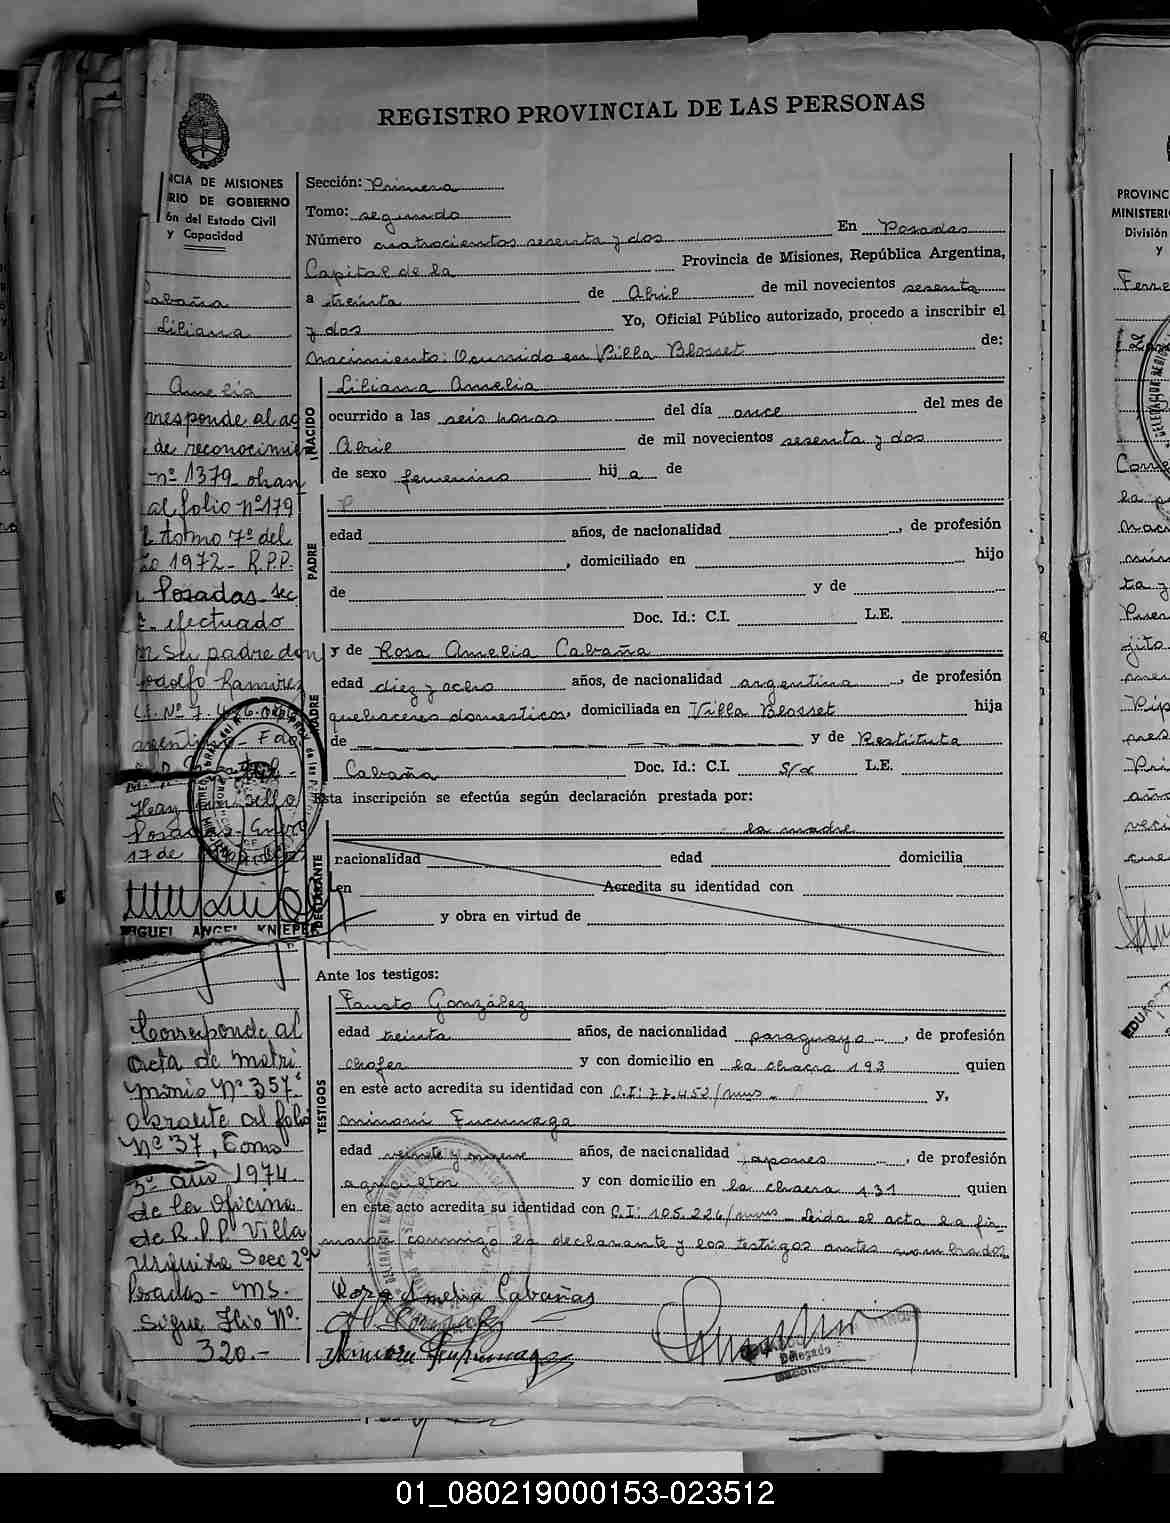 REGISTRO PROVINCIAL DE LAS PERSONAS
NCIA DE MISIONES
RIO DE GOBIERNO
ón del Estado Civil
y Capacidad
Cabaña
Liliana
Amelia
rresponde al ac
de reconocimien
nº 1379 obran
al folio Nº 179
Tomo 7º del
1972 - R.P.P.
Posadas Sec
efectuado
su padre don
Rodolfo Ramirez
argentino - Fdo
Hay un sello
Posadas - Enero
17 de
MIGUEL ANGEL KNIEPER
Corresponde al
acta de matri
monio Nº 357
obrante al folio
Nº 37, Tomo
3º año 1974
de la Oficina
de R.P.P. Villa
Urquiza Secc 2º
Posadas - MS.
Sigue Flio Nº.
320.-
Sección: Primera
Tomo: segundo
Número cuatrocientos sesenta y dos En Posadas
Capital de la Provincia de Misiones, República Argentina,
a treinta de Abril de mil novecientos sesenta
y dos Yo, Oficial Público autorizado, procedo a inscribir el
nacimiento: Ocurrido en Villa Blosset de:
NACIDO
Liliana Amelia
ocurrido a las seis horas del día once del mes de
Abril de mil novecientos sesenta y dos
de sexo femenino hij a de
PADRE
edad años, de nacionalidad , de profesión
, domiciliado en hijo
de y de
Doc. Id.: C.I. L.E.
MADRE
y de Rosa Amelia Cabaña
edad diez y ocho años, de nacionalidad argentina, de profesión
quehaceres domesticos, domiciliada en Villa Blosset hija
de y de Restituta
Cabaña Doc. Id.: C.I. L.E.
Esta inscripción se efectúa según declaración prestada por:
DECLARANTE
la madre
nacionalidad edad domicilia
en Acredita su identidad con
y obra en virtud de
Ante los testigos:
TESTIGOS
Fausto González
edad treinta años, de nacionalidad paraguayo, de profesión
chofer y con domicilio en la chacra 193 quien
en este acto acredita su identidad con C.I: 77.452/mns - y,
Minoru Fucunaga
edad veinte y nueve años, de nacionalidad japones, de profesión
agricultor y con domicilio en la chacra 131 quien
en este acto acredita su identidad con C.I: 105.224/mns - Leida el acta la fir-
maron conmigo la declarante y los testigos antes nombrados.
Rosa Amelia Cabañas
Delegado
PROVINC
MINISTERI
División
y
Ferre
01_080219000153-023512